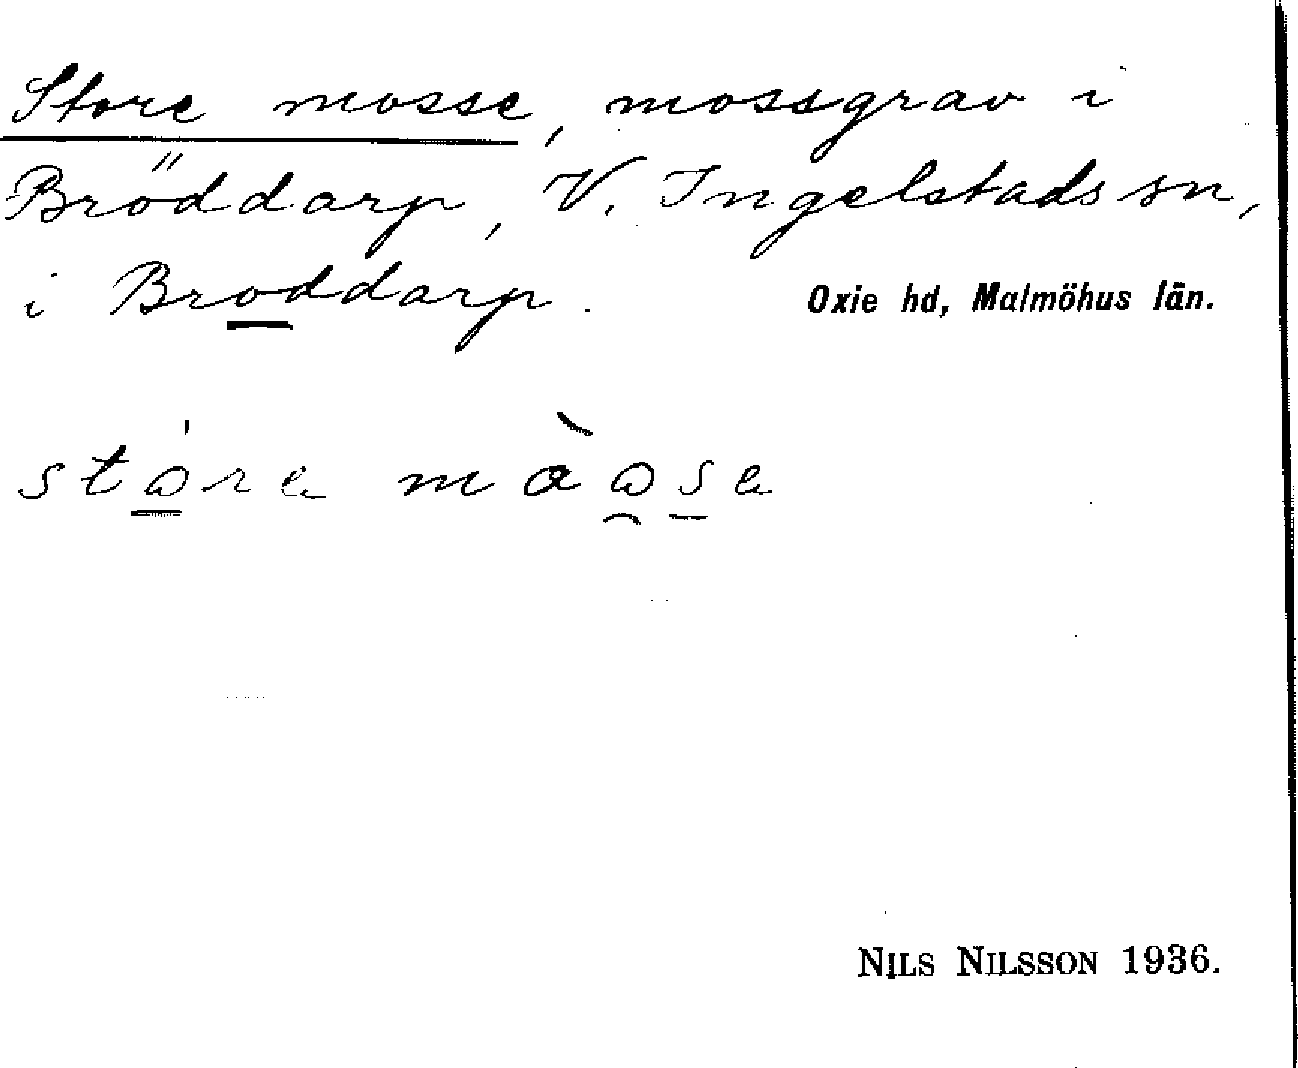 Store mosse, mossgrav i
Bröddarp, V. Ingelstads sn,
i Broddarp. Oxie hd, Malmöhus län.
NILS NILSSON 1936.